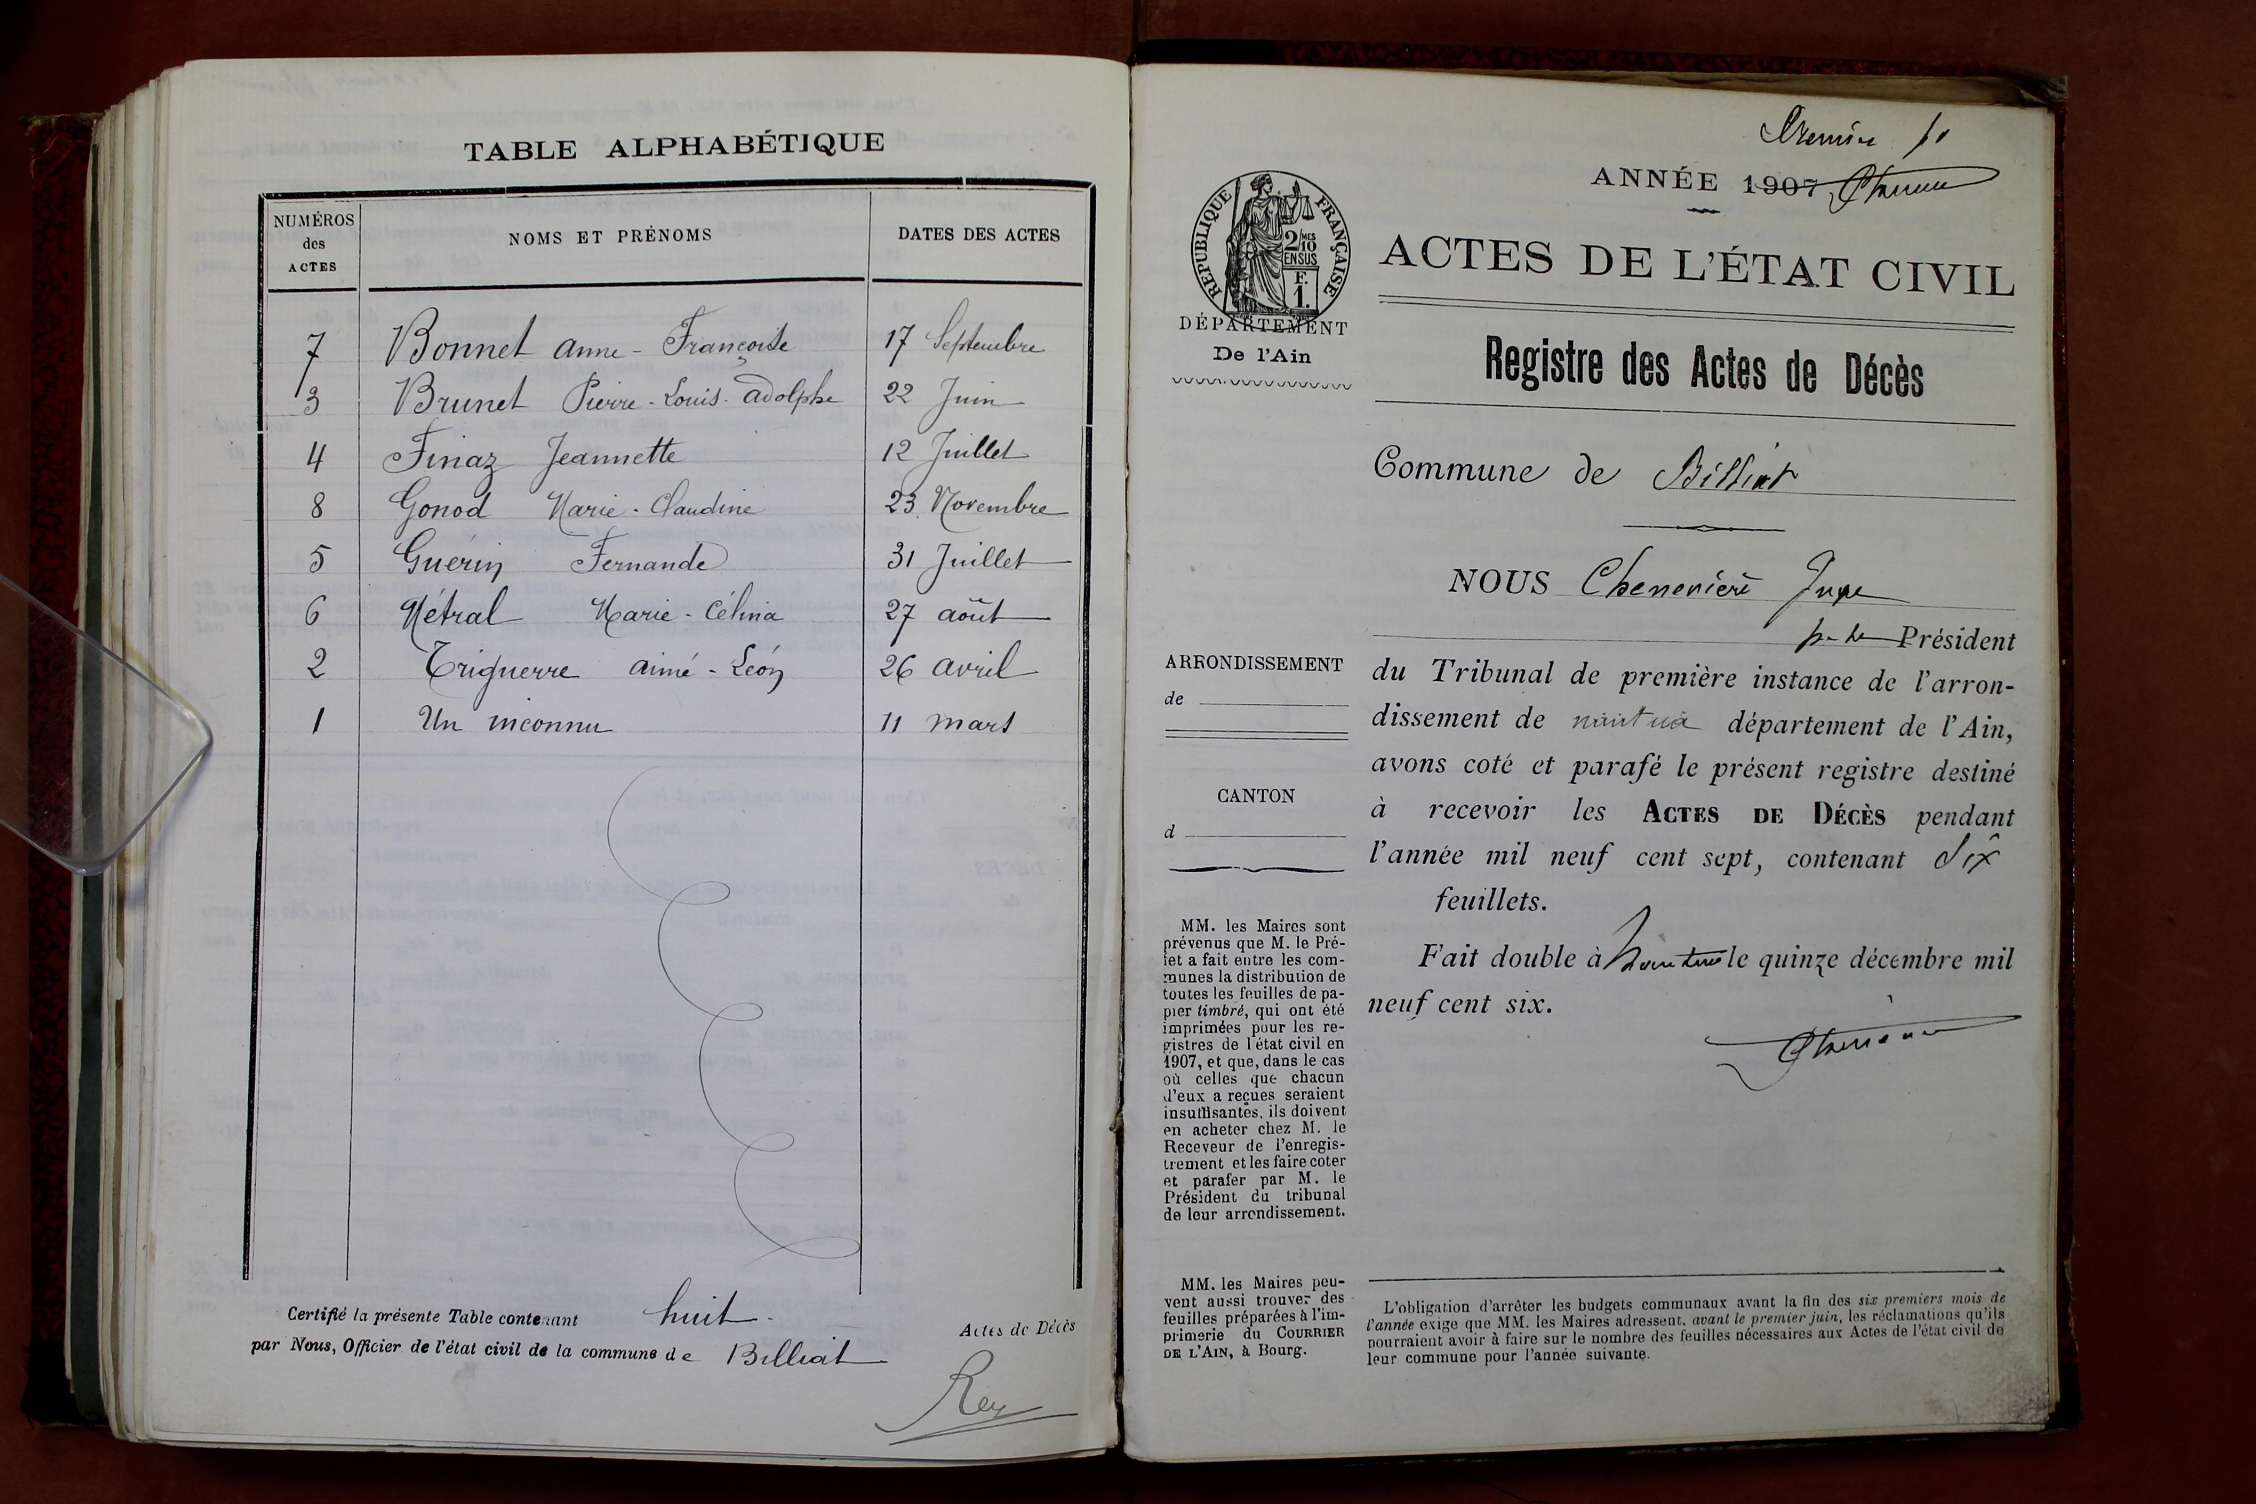 TABLE ALPHABÉTIQUE
NUMÉROS
des
ACTES
NOMS ET PRÉNOMS
DATES DES ACTES
7 Bonnet Anne - Françoise 17 Septembre
3 Brunet Pierre - Louis - Adolphe 22 Juin
4 Finaz Jeannette 12 Juillet
8 Gonod Marie - Claudine 23 Novembre
5 Guérin Fernande 31 Juillet
6 Métral Marie - Célina 27 août
2 Triguerre Aimé - Léon 26 avril
1 Un inconnu 11 mars
Certifié la présente Table contenant huit
par Nous, Officier de l'état civil de la commune de Billiat
Actes de Décès
Rey
ANNÉE 1907
RÉPUBLIQUE FRANÇAISE
2/10 MES
EN SUS
F.
1.
DÉPARTEMENT
De l'Ain
ACTES DE L'ÉTAT CIVIL
Registre des Actes de Décès
Commune de Billiat
NOUS
Président
du Tribunal de première instance de l'arron-
dissement de nantua département de l'Ain,
avons coté et parafé le présent registre destiné
à recevoir les ACTES DE DÉCÈS pendant
l'année mil neuf cent sept, contenant Six
feuillets.
Fait double à Nantua le quinze décembre mil
neuf cent six.
ARRONDISSEMENT
de
CANTON
d
MM. les Maires sont
prévenus que M. le Pré-
fet a fait entre les com-
munes la distribution de
toutes les feuilles de pa-
pier timbré, qui ont été
imprimées pour les re-
gistres de l'état civil en
1907, et que, dans le cas
où celles que chacun
d'eux a reçues seraient
insuffisantes, ils doivent
en acheter chez M. le
Receveur de l'enregis-
trement et les faire coter
et parafer par M. le
Président du tribunal
de leur arrondissement.
MM. les Maires peu-
vent aussi trouver des
feuilles préparées à l'im-
primerie du COURRIER
DE L'AIN, à Bourg.
L'obligation d'arrêter les budgets communaux avant la fin des six premiers mois de
l'année exige que MM. les Maires adressent, avant le premier juin, les réclamations qu'ils
pourraient avoir à faire sur le nombre des feuilles nécessaires aux Actes de l'état civil de
leur commune pour l'année suivante.